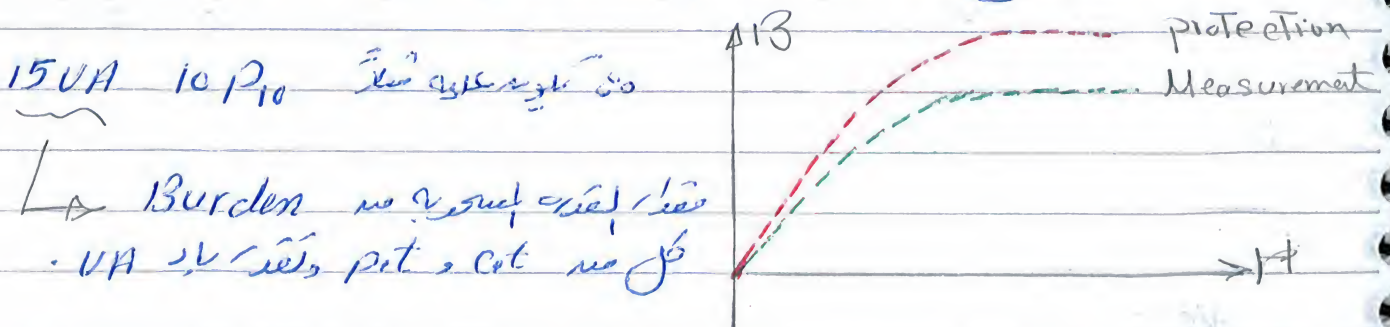 15VA 10P10 عليه مثلاً
Burden مقدار القدرة المسحوبة من
كل من C.t و P.t وتقدر بالـ VA .
B
protection
Measurement
H